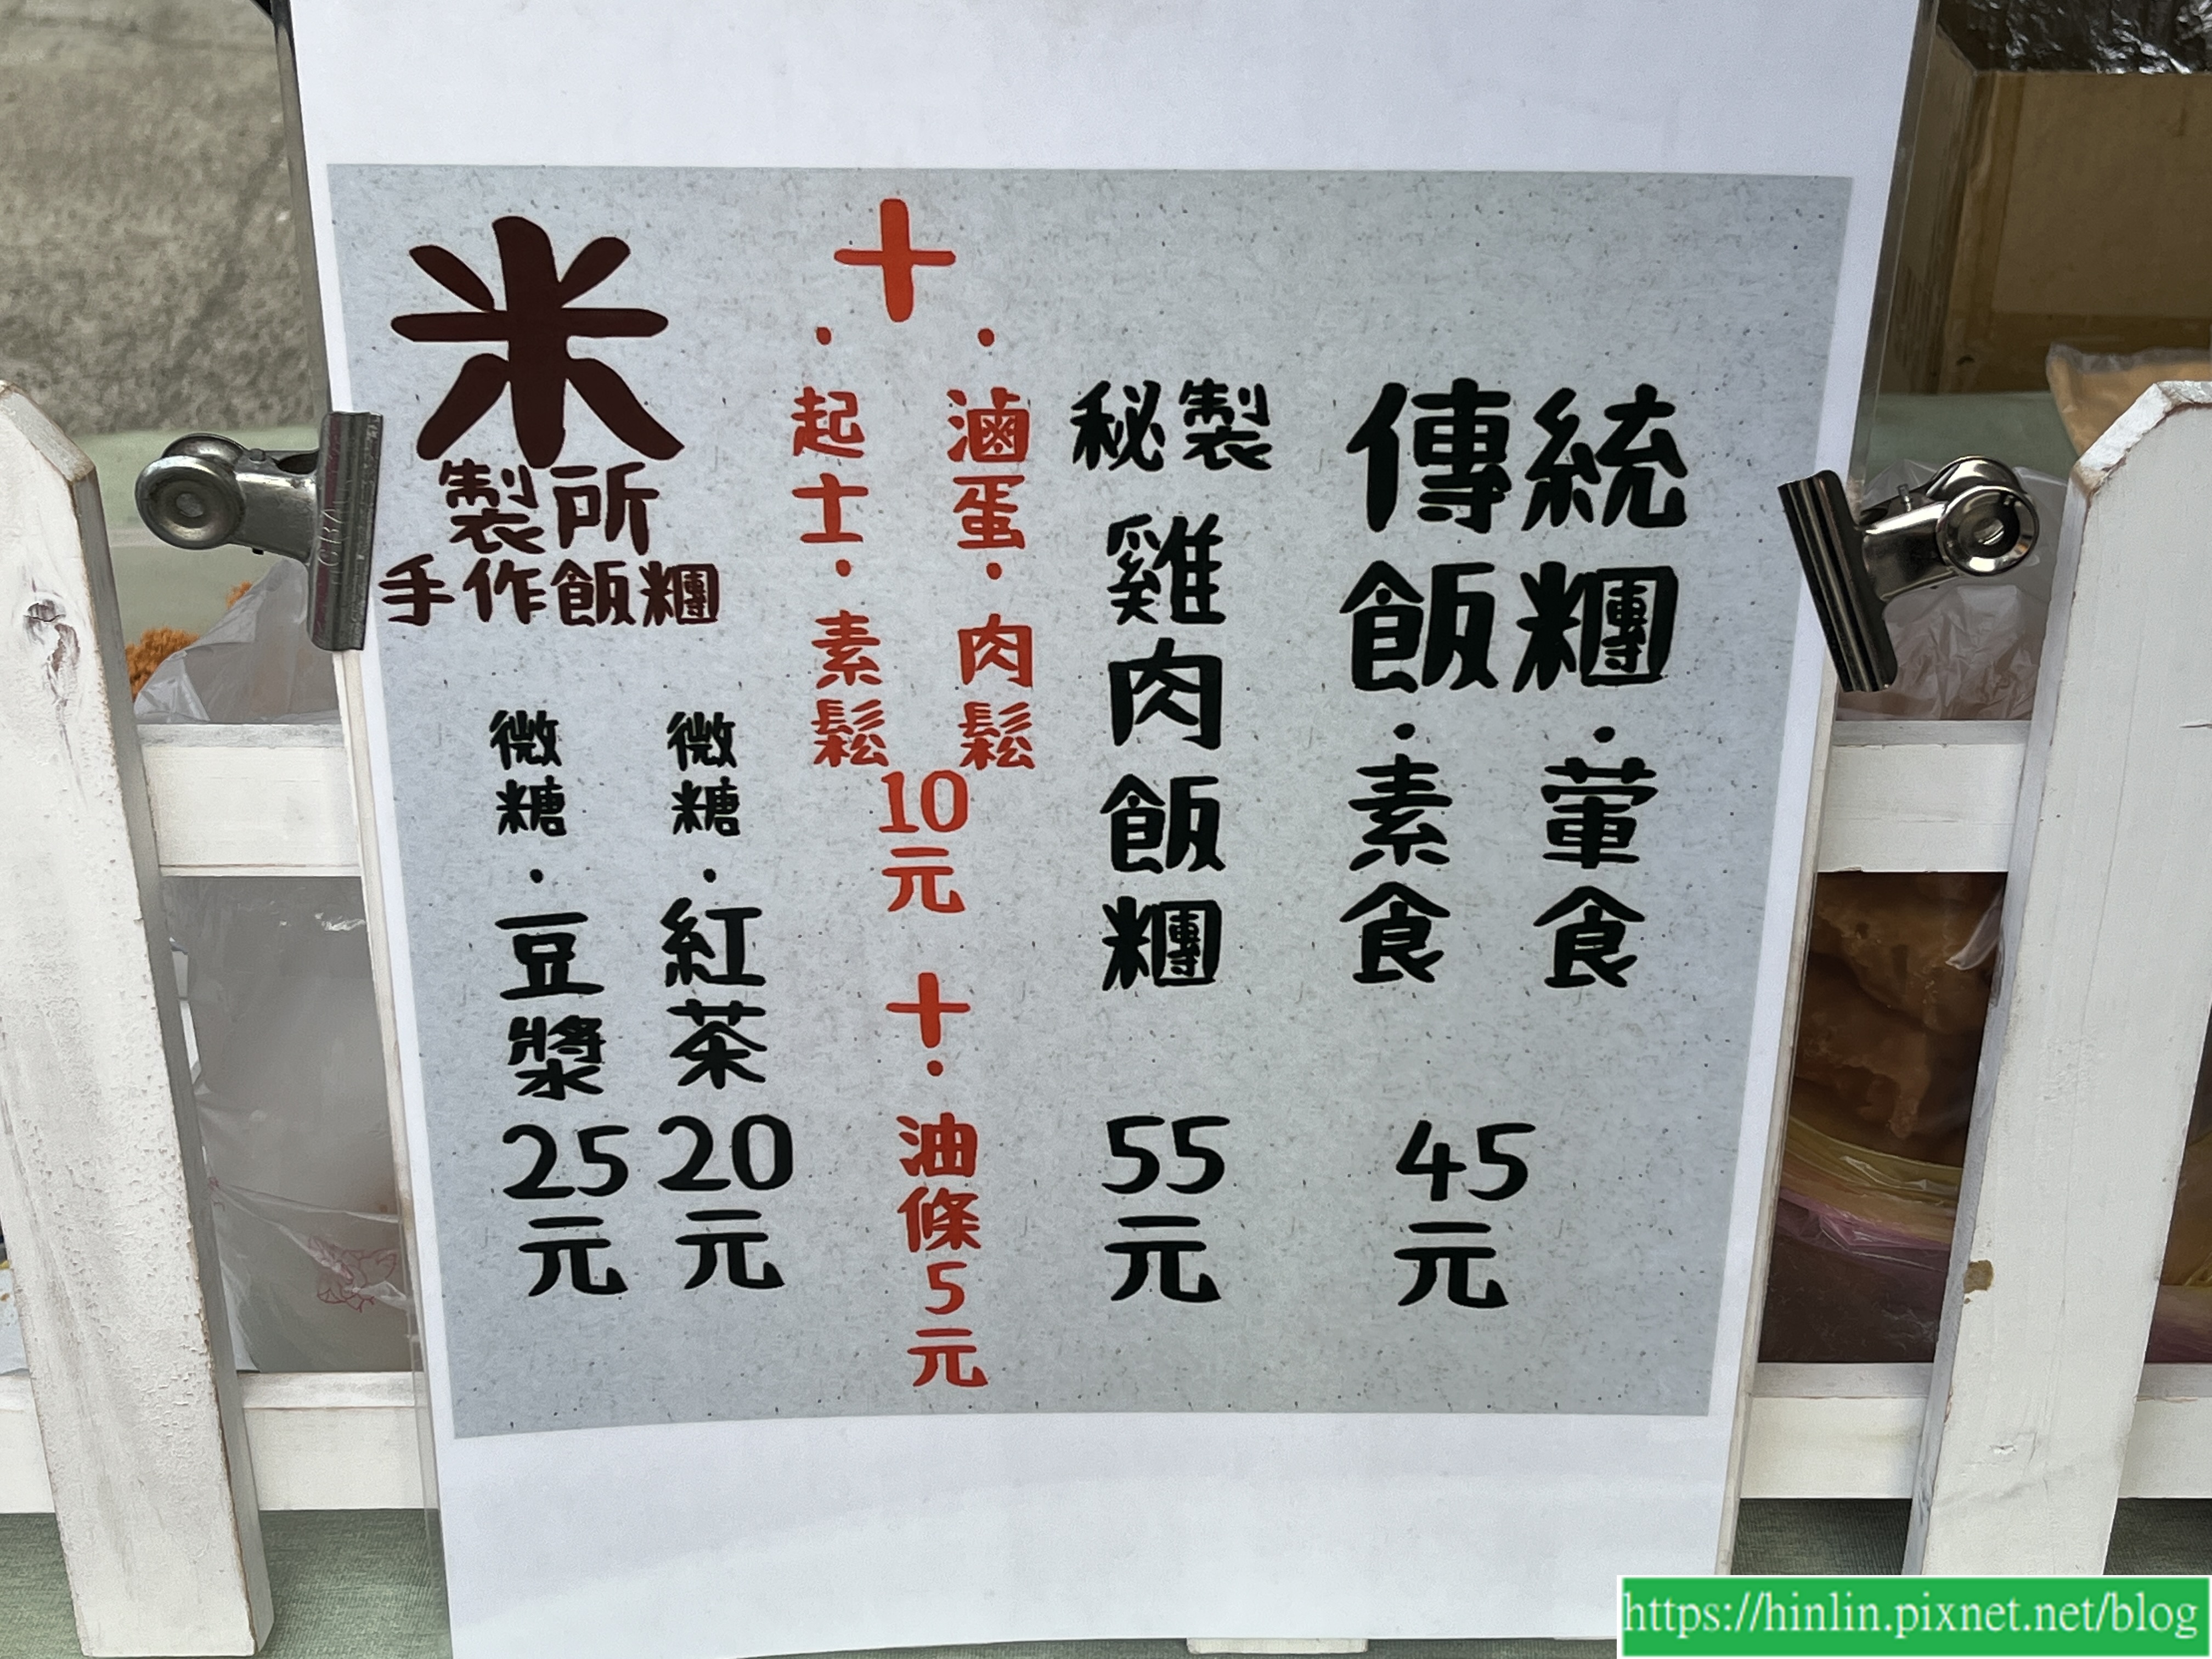 傳統飯糰
・葷食
・素食
45元
秘製
雞肉飯糰
55元
＋
・滷蛋・肉鬆
・起士・素鬆
10元
＋・油條5元
米
製所
手作飯糰
微糖・紅茶20元
微糖・豆漿25元
https://hinlin.pixnet.net/blog